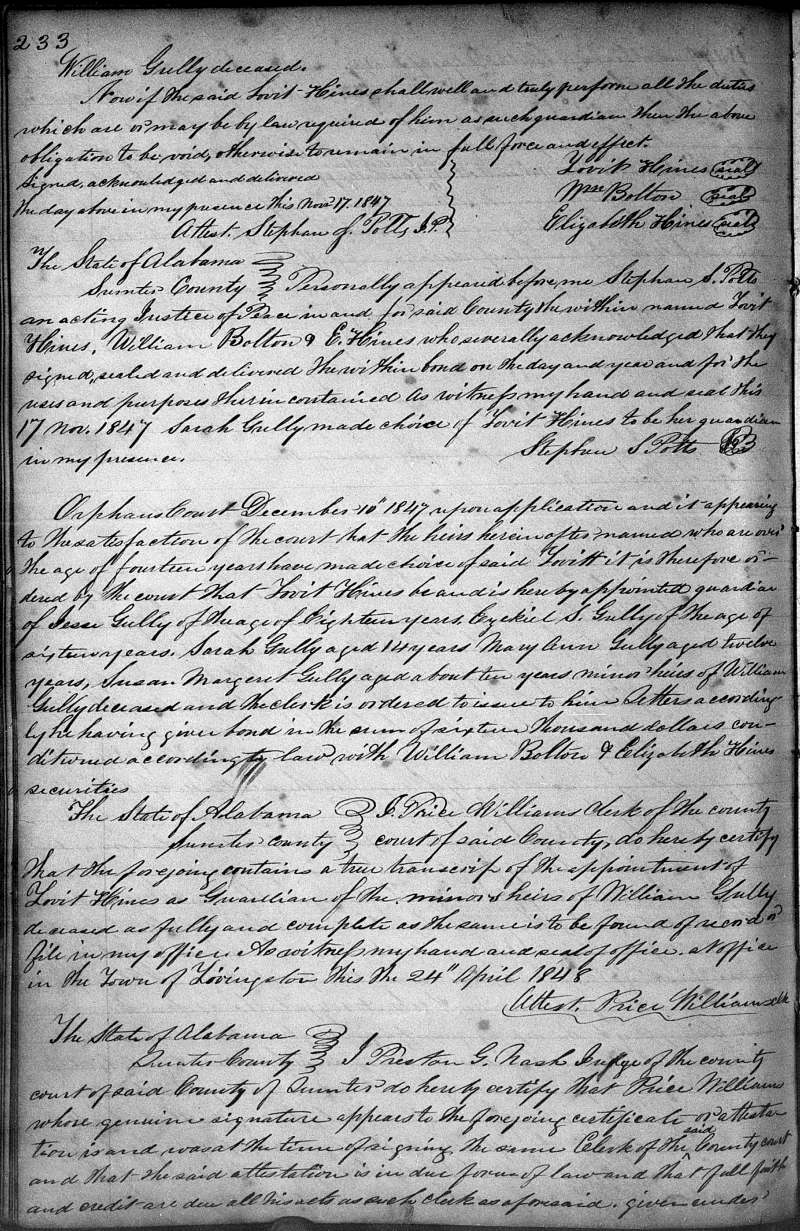 233
William Gully deceased.
Now if the said Lovit Hines shall well and truly perform all the duties
which are or may be by law required of him as such guardian then the above
obligation to be void, otherwise to remain in full force and effect.
Signed, acknowledged and delivered Lovit Hines (seal)
the day above in my presence this Nov 17. 1847 Wm Bolton (seal)
Attest. Stephen S. Potts J.P. Elizabeth Hines (seal)
The State of Alabama
Sumter County Personally appeared before me Stephen S. Potts
an acting Justice of Peace in and for said County the within named Lovit
Hines, William Bolton & E. Hines who severally acknowledged that they
signed, sealed and delivered the within bond on the day and year and for the
uses and purposes therein contained As witness my hand and seal this
17 Nov. 1847 Sarah Gully made choice of Lovit Hines to be her guardian
in my presence. Stephen S Potts
Orphans Court December 10" 1847 upon application and it appearing
to the satisfaction of the court that the heirs herein after named who are over
the age of fourteen years have made choice of said Lovitt it is therefore or-
dered by the court that Lovit Hines be and is hereby appointed guardian
of Jesse Gully of the age of Eighteen years, Ezekiel S. Gully of the age of
sixteen years. Sarah Gully aged 14 years Mary Ann Gully aged twelve
years, Susan Margaret Gully aged about ten years minor heirs of William
Gully deceased and the clerk is ordered to issue to him letters according
ly he having given bond in the sum of sixteen thousand dollars con-
ditioned according to law with William Bolton & Elizabeth Hines
securities
The State of Alabama I. Price Williams Clerk of the county
Sumter County court of said County, do hereby certify
that the foregoing contains a true transcrip of the appointment of
Lovit Hines as Guardian of the minors heirs of William Gully
deceased as fully and complete as the same is to be found of record or
file in my office. As witness my hand and seal of office. at office
in the Town of Livingston this the 24" April 1848
Attest. Price Williams clk
The State of Alabama
Sumter County I Preston G. Nash Judge of the county
court of said County of Sumter do hereby certify that Price Williams
whose genuine signature appears to the foregoing certificate or attesta
tion is and was at the time of signing the same Clerk of the said County court
and that the said attestation is in due form of law and that full faith
and credit are due all his acts as such clerk as aforesaid. given under